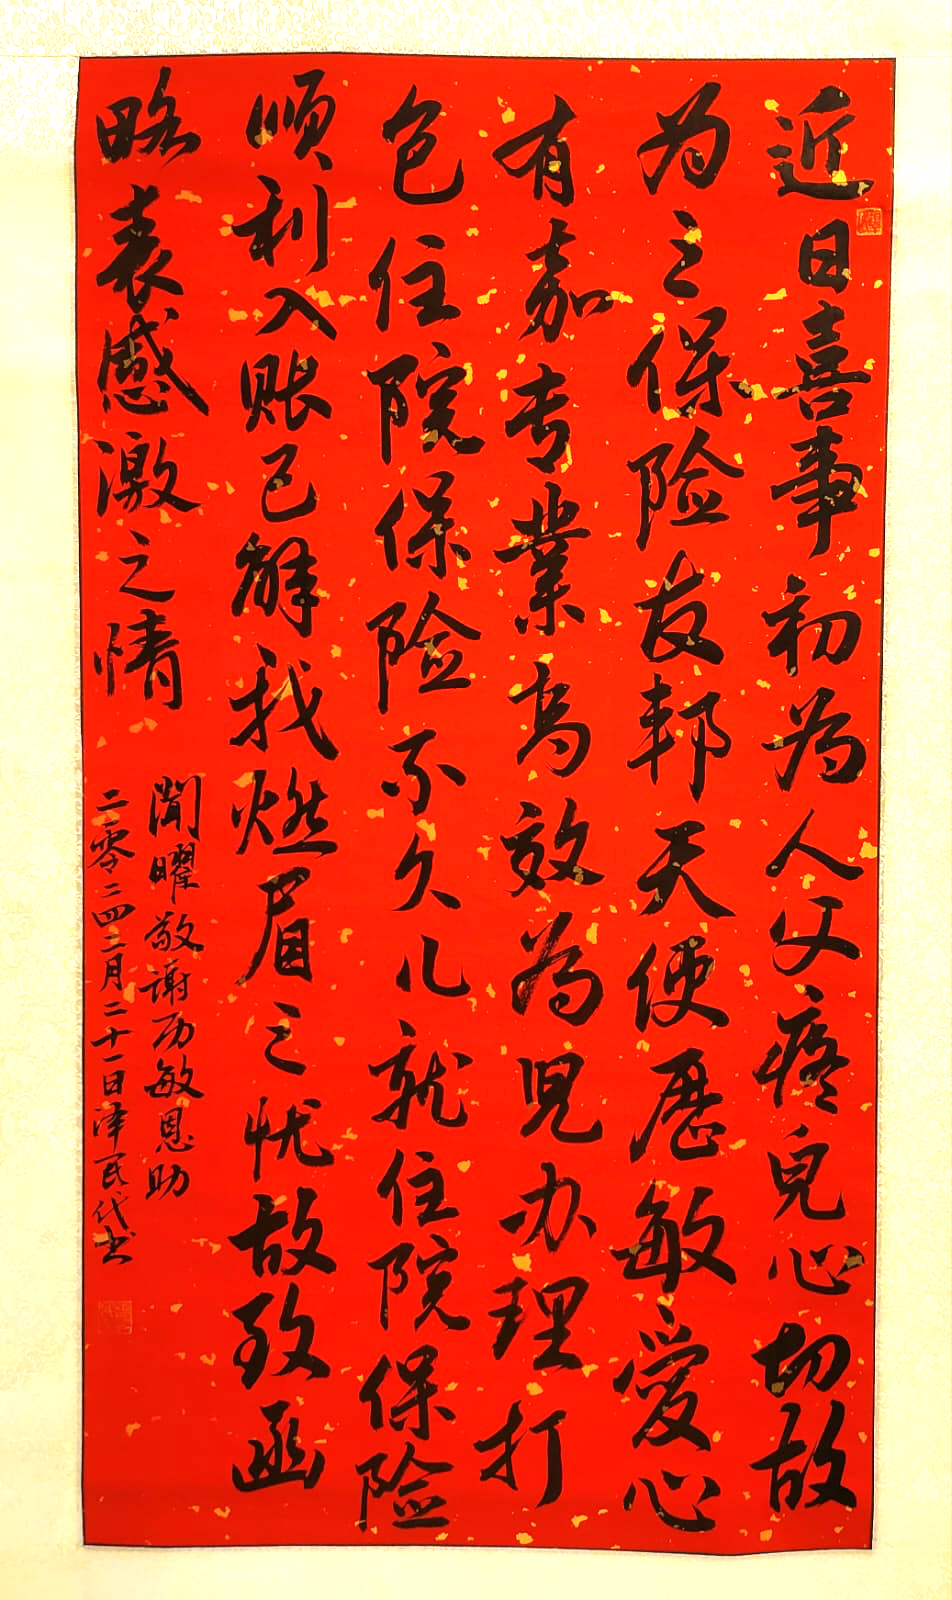 近日喜事初为人父疼兒心切故
为之保险友邦天使历敏愛心
有嘉专業高效為兒办理打
包住院保险不久儿就住院保险
顺利入账已解我燃眉之忧故致函
略表感激之情
闻曜敬谢历敏恩助
二零二四二月二十一日泽民代书